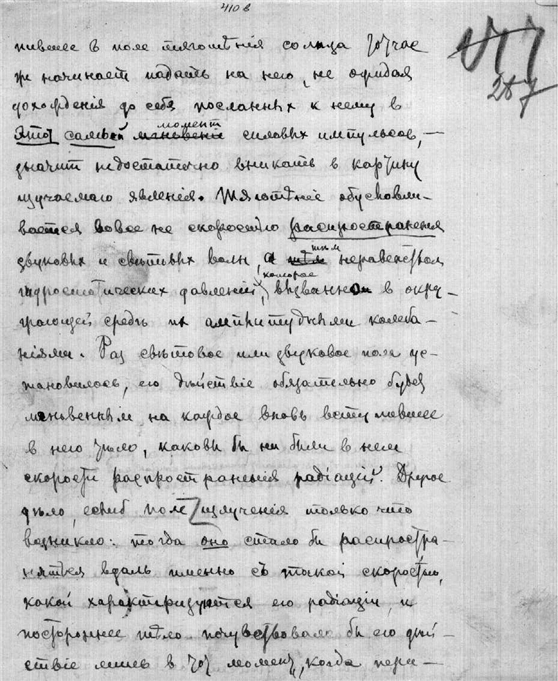 410 в
267
пившее в поле тяготѣнія солнца тотчас
ж начинает падать на него, не ожидая
дохожденія до себя посланных к нему в
момент
этот самый мгновеніе силовых импульсов, —
значит недостаточно вникать в картину
изучаемаго явленія. Тяготѣніе обусловли-
вается вовсе не скоростью распространенія
звуковых и свѣтовых волн, а тѣм неравенством
тѣм
которое
гидростатических давленій, вызванном в окру-
жающей средѣ их амплитудными колеба-
ніями. Раз свѣтовое или звуковое поле ус-
тановилось, его дѣйствіе обязательно будет
мгновенным на каждое вновь вступившее
в него тѣло, каковы бы ни были в нем
скорости распространенія радіацій. Другое
дѣло, еслиб поле излученія только что
возникло: тогда оно стало бы распростра-
няться вдаль именно съ такой скоростью,
какой характеризуется его радіаціи, и
постороннее тѣло почувствовало бы его дѣй-
ствіе лишь в тот момент, когда пери-